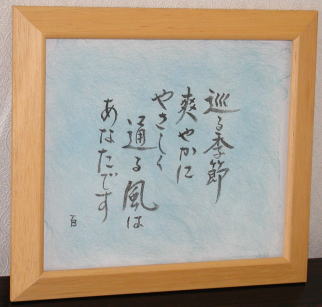 巡る季節
爽やかに
やさしく
通る風は
あなたです
百